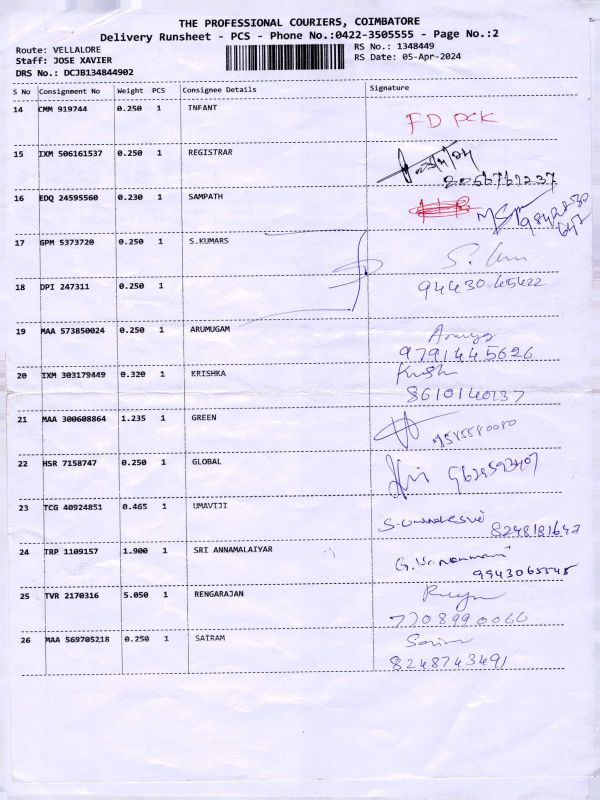 THE PROFESSIONAL COURIERS, COIMBATORE
Delivery Runsheet - PCS - Phone No.:0422-3505555 - Page No.:2
Route: VELLALORE
RS No.: 1348449
Staff: JOSE XAVIER
RS Date: 05-Apr-2024
DRS No.: DCJB134844902
S No Consignment No Weight PCS Consignee Details Signature
14 CMM 919744 0.250 1 INFANT FD PCK
15 IXM 506161537 0.250 1 REGISTRAR
16 EDQ 24595560 0.230 1 SAMPATH
17 GPM 5373720 0.250 1 S.KUMARS
18 DPI 247311 0.250 1 94430 45422
19 MAA 573850024 0.250 1 ARUMUGAM
9791445626
20 IXM 303179449 0.320 1 KRISHKA
8610140137
21 MAA 300608864 1.235 1 GREEN
22 HSR 7158747 0.250 1 GLOBAL
23 TCG 40924851 0.465 1 UMAVIJI
8248181647
24 TRP 1109157 1.900 1 SRI ANNAMALAIYAR
9943065545
25 TVR 2170316 5.050 1 RENGARAJAN
7708990066
26 MAA 569705218 0.250 1 SAIRAM
8248743491